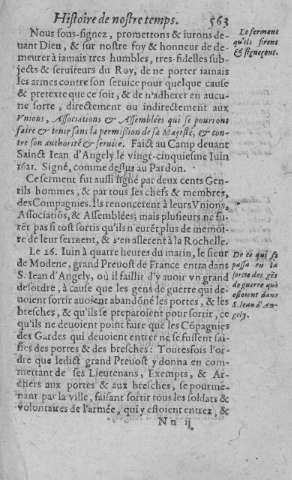 Histoire de nostre temps. 563
Nous sous-signez, promettons & iurons de-
uant Dieu, & sur nostre foy & honneur de de-
meurer à iamais tres humbles, tres-fidelles sub-
jects & seruiteurs du Roy, de ne porter iamais
les armes contre son seruice pour quelque cause
& pretexte que ce soit, & de n'adherer en aucu-
ne sorte, directement ou indirectement aux
Vnions, Associations & Assemblées qui se pourront
faire & tenir sans la permission de sa Majesté, & con-
tre son authorité & seruice. Faict au Camp deuant
Sainct Iean d'Angely le vingt-cinquiesme Iuin
1621. Signé, comme dessus au Pardon.
Ce serment fut aussi signé par deux cents Gen-
tils hommes, & par tous les chefs & membres,
des Compagnies. Ils renoncerent à leurs Vnions,
Associatiōs, & Assemblées; mais plusieurs ne fu-
rent pas si tost sortis qu'ils n'eurēt plus de memoi-
re de leur serment, & s'en allerent à la Rochelle.
Le 26. Iuin à quatre heures du matin, le sieur
de Modene, grand Preuost de France entra dans
S. Iean d'Angely, où il faillit d'y auoir vn grand
desordre, à cause que les gens de guerre qui de-
uoient sortir auoient abandōné les portes, & les
bresches, & qu'ils se preparoient pour sortir, ce
qu'ils ne deuoient point faire que les Cōpagnies
des Gardes qui deuoient entrer ne se fussent sai-
sies des portes & des bresches: Toutesfois l'or-
dre que ledict grand Preuost y donna en com-
mettant de ses Lieutenans, Exempts, & Ar-
chers aux portes & aux bresches, se pourme-
nant par la ville, faisant sortir tous les soldats &
volontaires de l'armée, qui y estoient entrez, &
N n ij
Le serment
qu'ils firent
& signerent.
De ce qui se
passa en la
sortie des gēs
de guerre qui
estoient dans
S. Iean d'An-
gely.